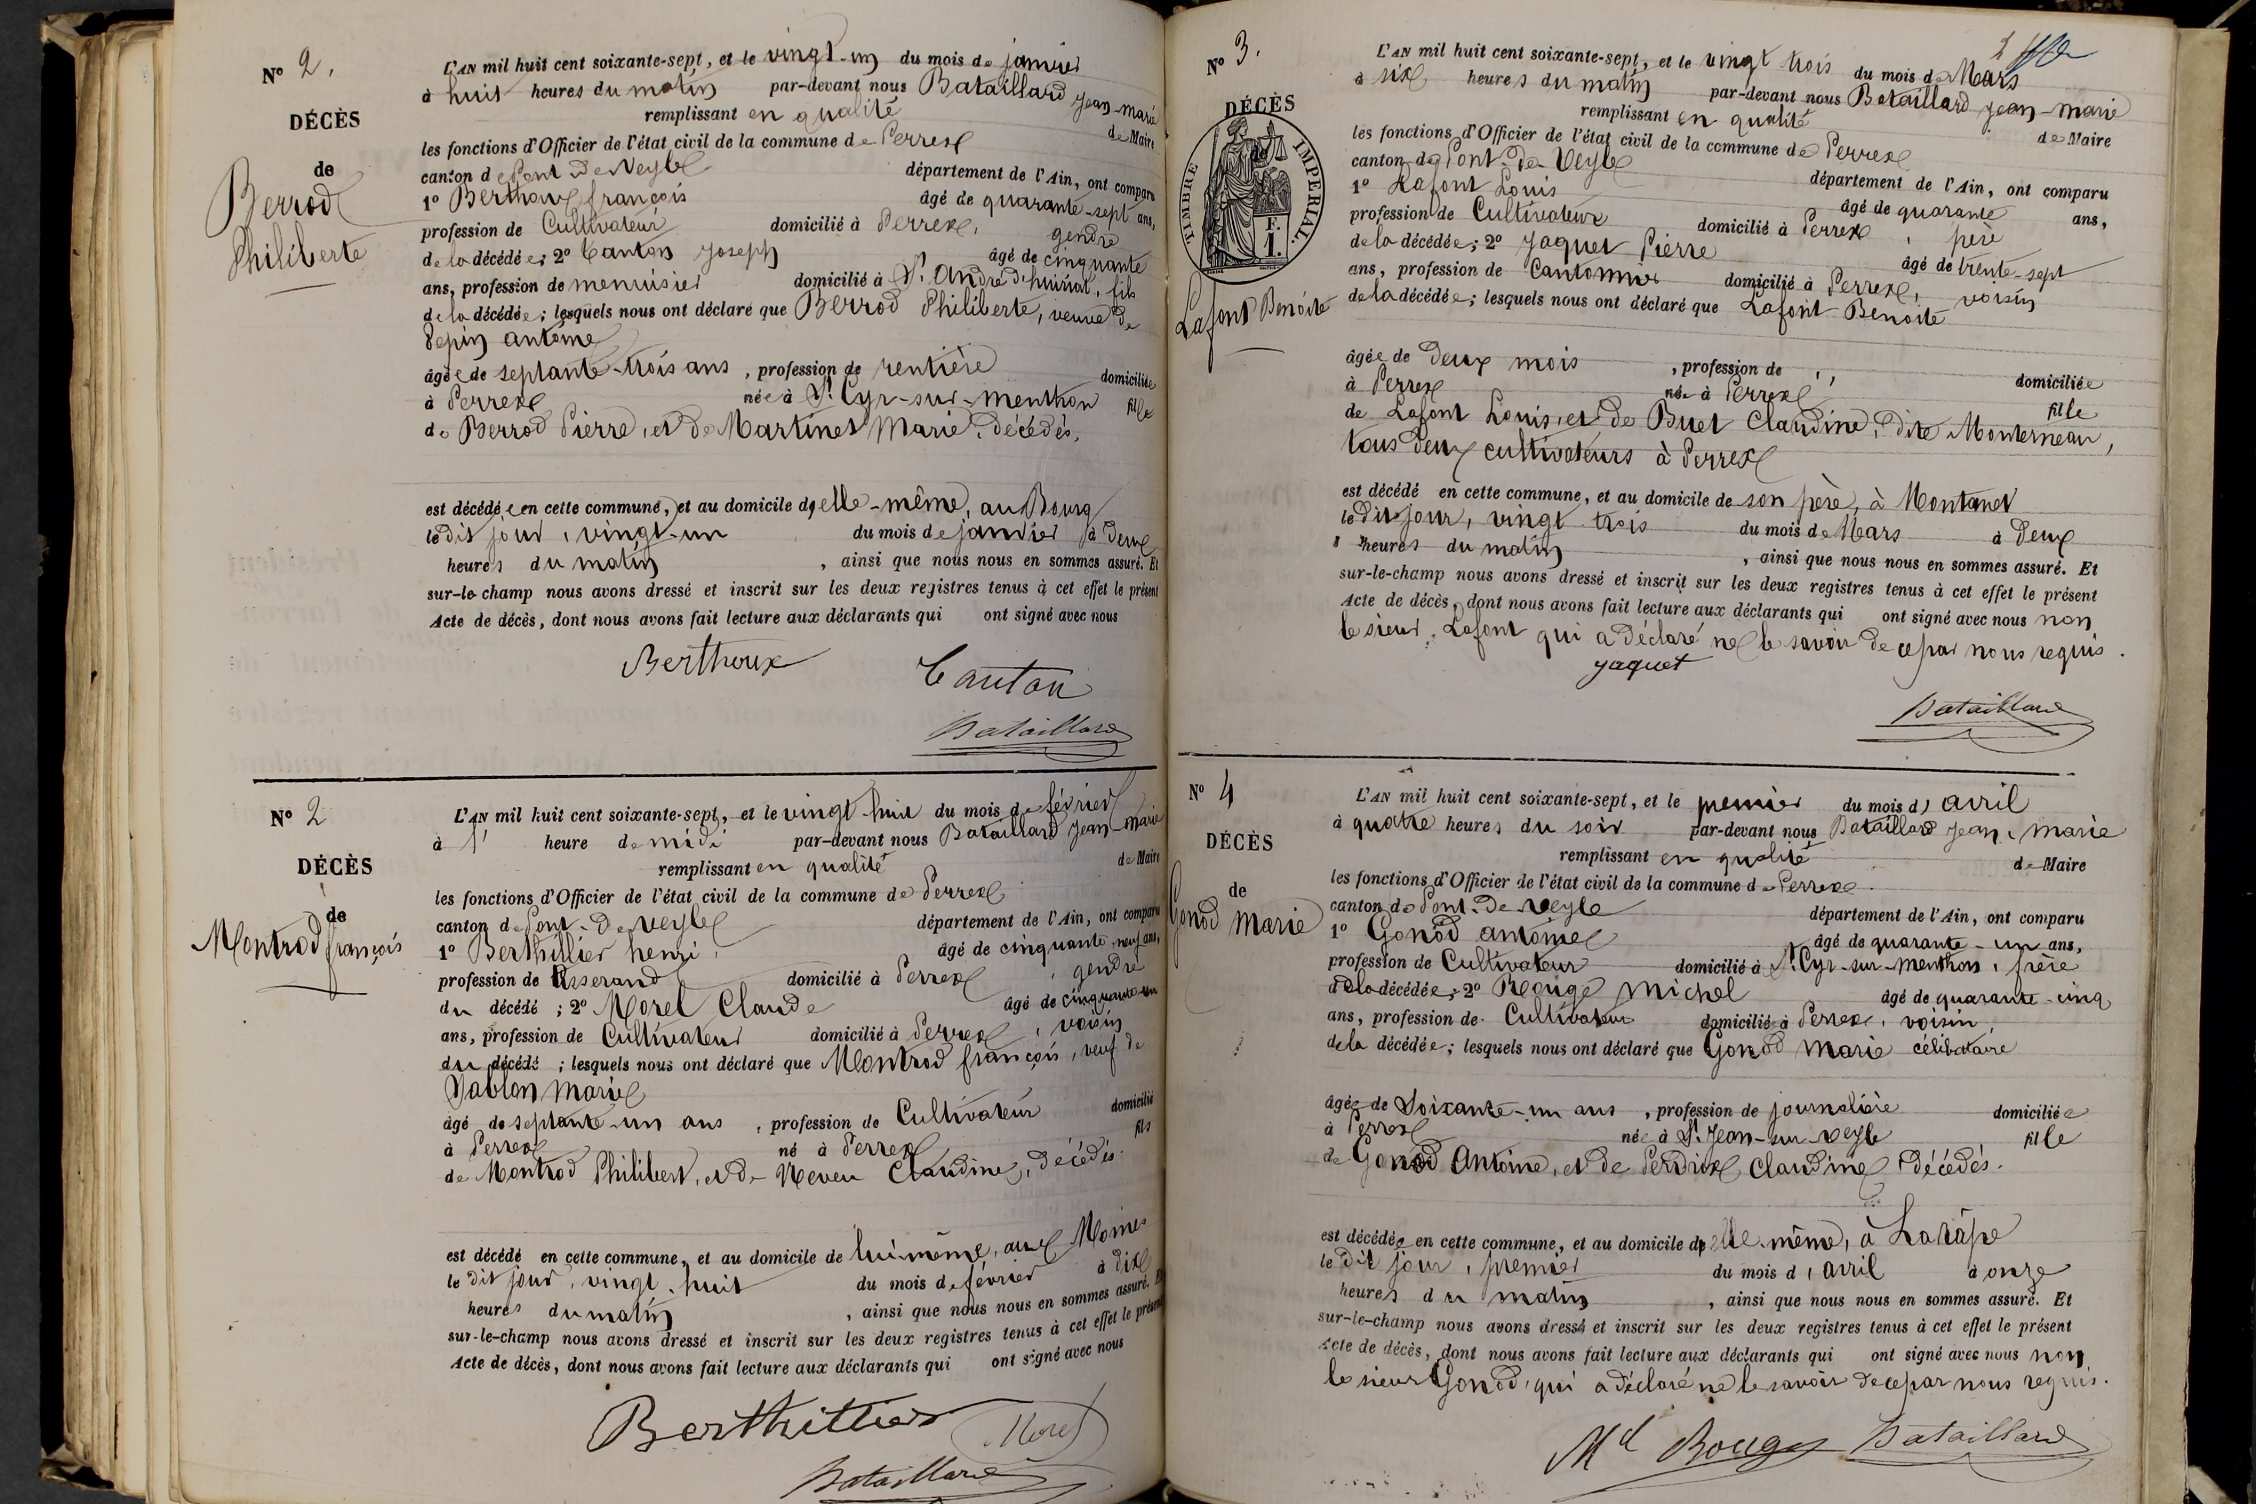 N° 2.
DÉCÈS
de
Berrod
Philiberte
L'AN mil huit cent soixante-sept, et le vingt-un du mois de janvier
à huit heures du matin par-devant nous Bataillard Jean-Marie
remplissant en qualité de Maire
les fonctions d'Officier de l'état civil de la commune de Perrex
canton de Pont-de-Veyle département de l'Ain, ont comparu
1° Berthoux françois âgé de quarante-sept ans,
profession de Cultivateur domicilié à Perrex, gendre
de la décédée; 2° Canton Joseph âgé de cinquante
ans, profession de menuisier domicilié à St. André d'huiriat, fils
de la décédée; lesquels nous ont déclaré que Berrod Philiberte, veuve de
Pepin antoine
âgée de septante-trois ans, profession de rentière domiciliée
à Perrex née à St. Cyr-sur-menthon fille
de Berrod Pierre, et de Martinet Marie, décédés,
est décédée en cette commune, et au domicile d'elle-même, au Bourg
le dit jour, vingt-un du mois de janvier à deux
heures du matin, ainsi que nous nous en sommes assuré. Et
sur-le-champ nous avons dressé et inscrit sur les deux registres tenus à cet effet le présent
Acte de décès, dont nous avons fait lecture aux déclarants qui ont signé avec nous
Berthoux Canton
Bataillard
N° 2
DÉCÈS
de
Montrod
françois
L'AN mil huit cent soixante-sept, et le vingt-huit du mois de février
à 1' heure de midi par-devant nous Bataillard Jean-Marie
remplissant en qualité de Maire
les fonctions d'Officier de l'état civil de la commune de Perrex
canton de Pont-de-Veyle département de l'Ain, ont comparu
1° Berthillier henri, âgé de cinquante-neuf ans,
profession de tisserand domicilié à Perrex, gendre
du décédé; 2° Morel Claude âgé de cinquante-un
ans, profession de Cultivateur domicilié à Perrex, voisin
du décédé; lesquels nous ont déclaré que Montrod françois, veuf de
Vablon Marie
âgé de septante-un ans, profession de Cultivateur domicilié
à Perrex né à Perrex fils
de Montrod Philibert, et de Neveu Claudine, décédés.
est décédé en cette commune, et au domicile de lui-même, aux Moines
le dit jour, vingt-huit du mois de février à dix
heures du matin, ainsi que nous nous en sommes assuré. Et
sur-le-champ nous avons dressé et inscrit sur les deux registres tenus à cet effet le présent
Acte de décès, dont nous avons fait lecture aux déclarants qui ont signé avec nous
Berthillier Morel
Bataillard
N° 3.
DÉCÈS
de
TIMBRE IMPERIAL.
F.
1.
Lafont Benoite
L'AN mil huit cent soixante-sept, et le vingt trois du mois de Mars
à six heures du matin par-devant nous Bataillard Jean-Marie
remplissant en qualité de Maire
les fonctions d'Officier de l'état civil de la commune de Perrex
canton de Pont-de-Veyle département de l'Ain, ont comparu
1° Lafont Louis âgé de quarante ans,
profession de Cultivateur domicilié à Perrex, père
de la décédée; 2° Jaquet Pierre âgé de trente-sept
ans, profession de Cantonnier domicilié à Perrex, voisin
de la décédée; lesquels nous ont déclaré que Lafont Benoite
âgée de deux mois, profession de ,, domiciliée
à Perrex née à Perrex fille
de Lafont Louis, et de Buet Claudine, dite Monterneau,
tous deux cultivateurs à Perrex
est décédé en cette commune, et au domicile de son père, à Montanet
le dit jour, vingt trois du mois de Mars à deux
heures du matin, ainsi que nous nous en sommes assuré. Et
sur-le-champ nous avons dressé et inscrit sur les deux registres tenus à cet effet le présent
Acte de décès, dont nous avons fait lecture aux déclarants qui ont signé avec nous non
le sieur Lafont qui a déclaré ne le savoir de ce par nous requis.
Jaquet
Bataillard
N° 4
DÉCÈS
de
Gonod Marie
L'AN mil huit cent soixante-sept, et le premier du mois d'avril
à quatre heures du soir par-devant nous Bataillard Jean-marie
remplissant en qualité de Maire
les fonctions d'Officier de l'état civil de la commune de Perrex
canton de Pont-de-Veyle département de l'Ain, ont comparu
1° Gonod antoine âgé de quarante-un ans,
profession de Cultivateur domicilié à St. Cyr-sur-menthon, frère
de la décédée; 2° Rouge Michel âgé de quarante-cinq
ans, profession de Cultivateur domicilié à Perrex, voisin,
de la décédée; lesquels nous ont déclaré que Gonod Marie célibataire
âgée de Soixante-un ans, profession de journalière domiciliée
à Perrex née à St. Jean-sur-veyle fille
de Gonod Antoine, et de Perdrix Claudine, décédés.
est décédée en cette commune, et au domicile d'elle-même, à Larâpe
le dit jour, premier du mois d'avril à onze
heures du matin, ainsi que nous nous en sommes assuré. Et
sur-le-champ nous avons dressé et inscrit sur les deux registres tenus à cet effet le présent
Acte de décès, dont nous avons fait lecture aux déclarants qui ont signé avec nous non
le sieur Gonod, qui a déclaré ne le savoir de ce par nous requis.
Mel Rouge Bataillard